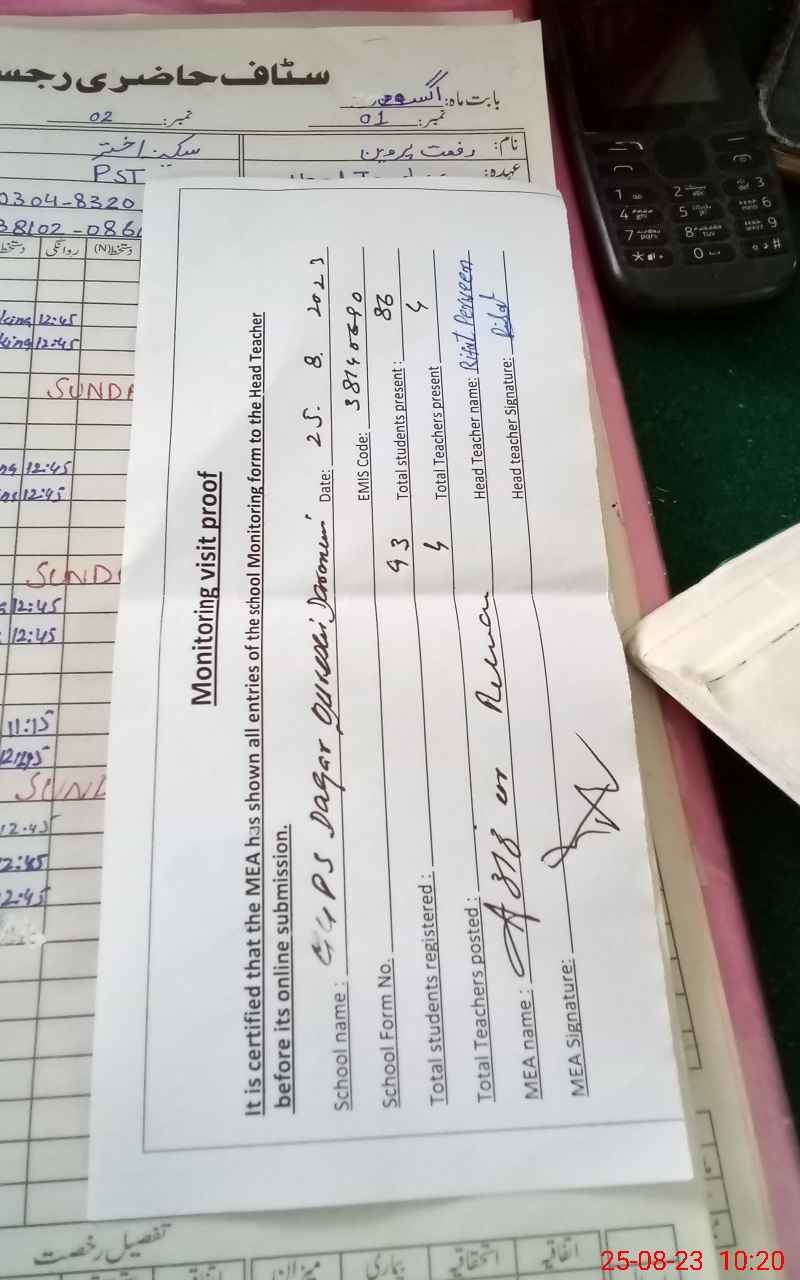 سٹاف حاضری رجس
بابت ماہ: اگست
نمبر: 01
نمبر: 02
نام: رفعت پروین
سکینہ اختر
عہدہ:
PST
0304-8320
38102-086
دستخط (N) روانگی دستخط
king 12:45
king 12:45
SUNDA
ng 12:45
ng 12:45
SUND
12:45
12:45
11:15
SUND
12:45
12:45
12:45
Monitoring visit proof
It is certified that the MEA has shown all entries of the school Monitoring form to the Head Teacher
before its online submission.
School name : GGPS Dagar Qureshi Date: 25. 8. 2023
School Form No. EMIS Code: 38140690
Total students registered : 93 Total students present : 86
Total Teachers posted : 4 Total Teachers present 4
MEA name : Aziz ur Rehman Head Teacher name: Rifat Perveen
MEA Signature: Head teacher Signature: Rifat
تفصیل رخصت
اتفاقیہ استحقاقیہ بیماری میزان
1 2 abc def 3
4 5 6
7 8 9
* 0 #
25-08-23 10:20